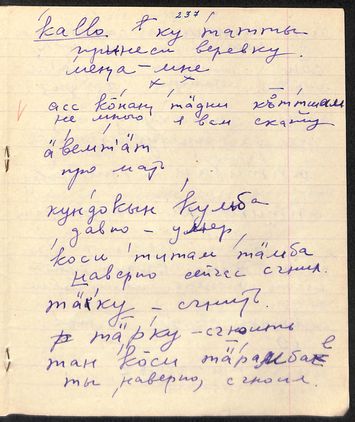 237
kallo. ку татты
принеси веревку.
мека – мне
асс ко̄наӈ тӓдни ко̄ттшам
не много я вам скажу
ӓвемтӓт
про мать
кундокын кульба
давно – умер
коси титам тӓмба
наверно сейчас сгнил.
тӓку – сгнить.
тӓрку – сгноить
тан ко̄си тӓрамбае
ты наверно, сгноил.